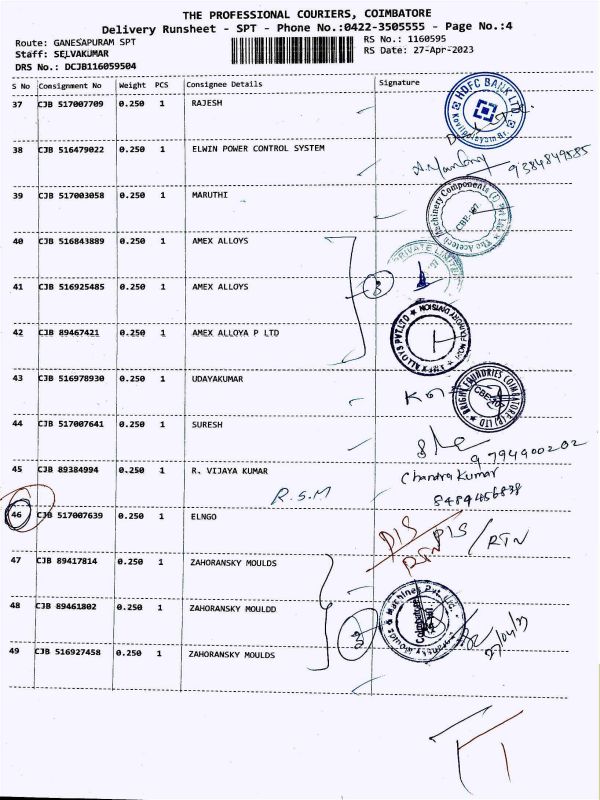 THE PROFESSIONAL COURIERS, COIMBATORE
Delivery Runsheet - SPT - Phone No.:0422-3505555 - Page No.:4
Route: GANESAPURAM SPT
RS No.: 1160595
Staff: SELVAKUMAR
RS Date: 27-Apr-2023
DRS No.: DCJB116059504
S No Consignment No Weight PCS Consignee Details Signature
37 CJB 517007709 0.250 1 RAJESH
HDFC BANK LTD.
38 CJB 516479022 0.250 1 ELWIN POWER CONTROL SYSTEM
9384849585
39 CJB 517003058 0.250 1 MARUTHI
Machinery Components (I) Pvt Ltd
CBE-107
40 CJB 516843889 0.250 1 AMEX ALLOYS
PRIVATE LIMITED
41 CJB 516925485 0.250 1 AMEX ALLOYS
3
42 CJB 89467421 0.250 1 AMEX ALLOYA P LTD
ALLOYS PVT.LTD ★ IRON FOUNDRY DIVISION ★ AMEX
43 CJB 516978930 0.250 1 UDAYAKUMAR
BRIGHT FOUNDRIES COIMBATORE (P) LTD
CBE-107
44 CJB 517007641 0.250 1 SURESH
9794900202
45 CJB 89384994 0.250 1 R. VIJAYA KUMAR
Chandra Kumar
8489456838
R.S.M
46 CJB 517007639 0.250 1 ELNGO
DIS DIS / RTN
RTN
47 CJB 89417814 0.250 1 ZAHORANSKY MOULDS
48 CJB 89461802 0.250 1 ZAHORANSKY MOULDD
& Machines Pvt. Ltd.
Coimbatore
3
27/04/23
49 CJB 516927458 0.250 1 ZAHORANSKY MOULDS